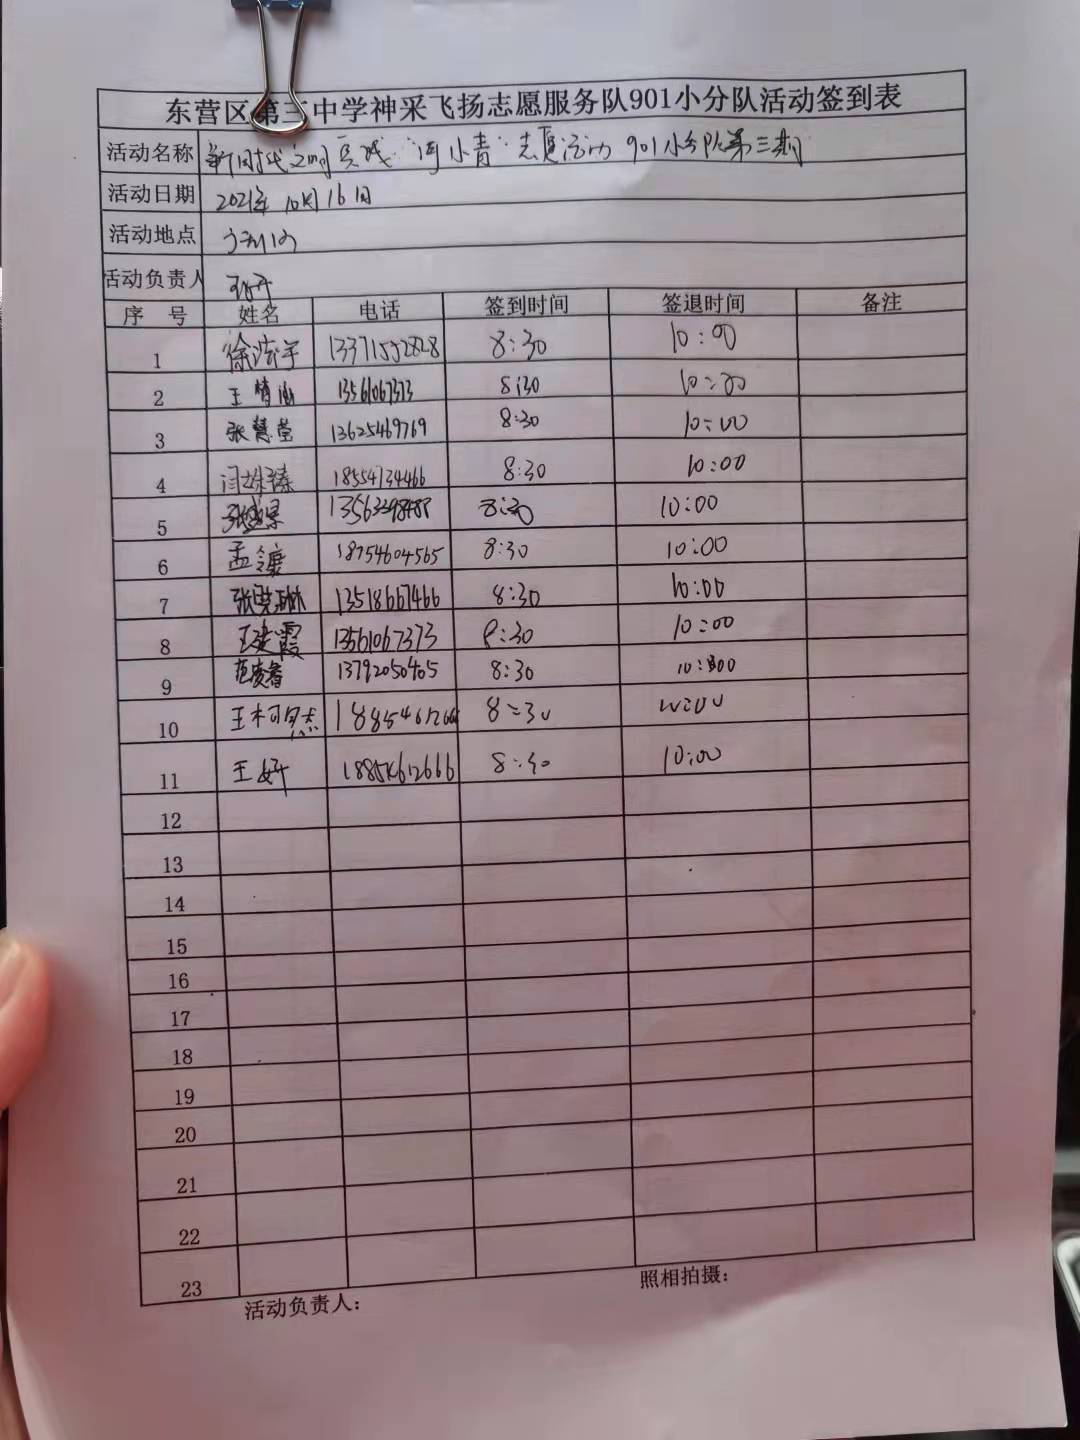 东营区第三中学神采飞扬志愿服务队901小分队活动签到表
活动名称 新时代文明实践"河小青"志愿活动 901小分队第三期
活动日期 2021年10月16日
活动地点
活动负责人 王妍
序 号 姓名 电话 签到时间 签退时间 备注
1 徐浩宇 13371552828 8:30 10:00
2 王 13561067373 8:30 10:00
3 张慧莹 13625469769 8:30 10:00
4 闫姝臻 18554734466 8:30 10:00
5 8:30 10:00
6 孟镰 18754604565 8:30 10:00
7 13518667466 8:30 10:00
8 王建霞 13561067373 8:30 10:00
9 13792050405 8:30 10:00
10 王柯杰 8:30 10:00
11 王妍 18854612666 8:30 10:00
12
13
14
15
16
17
18
19
20
21
22
23
活动负责人: 照相拍摄: